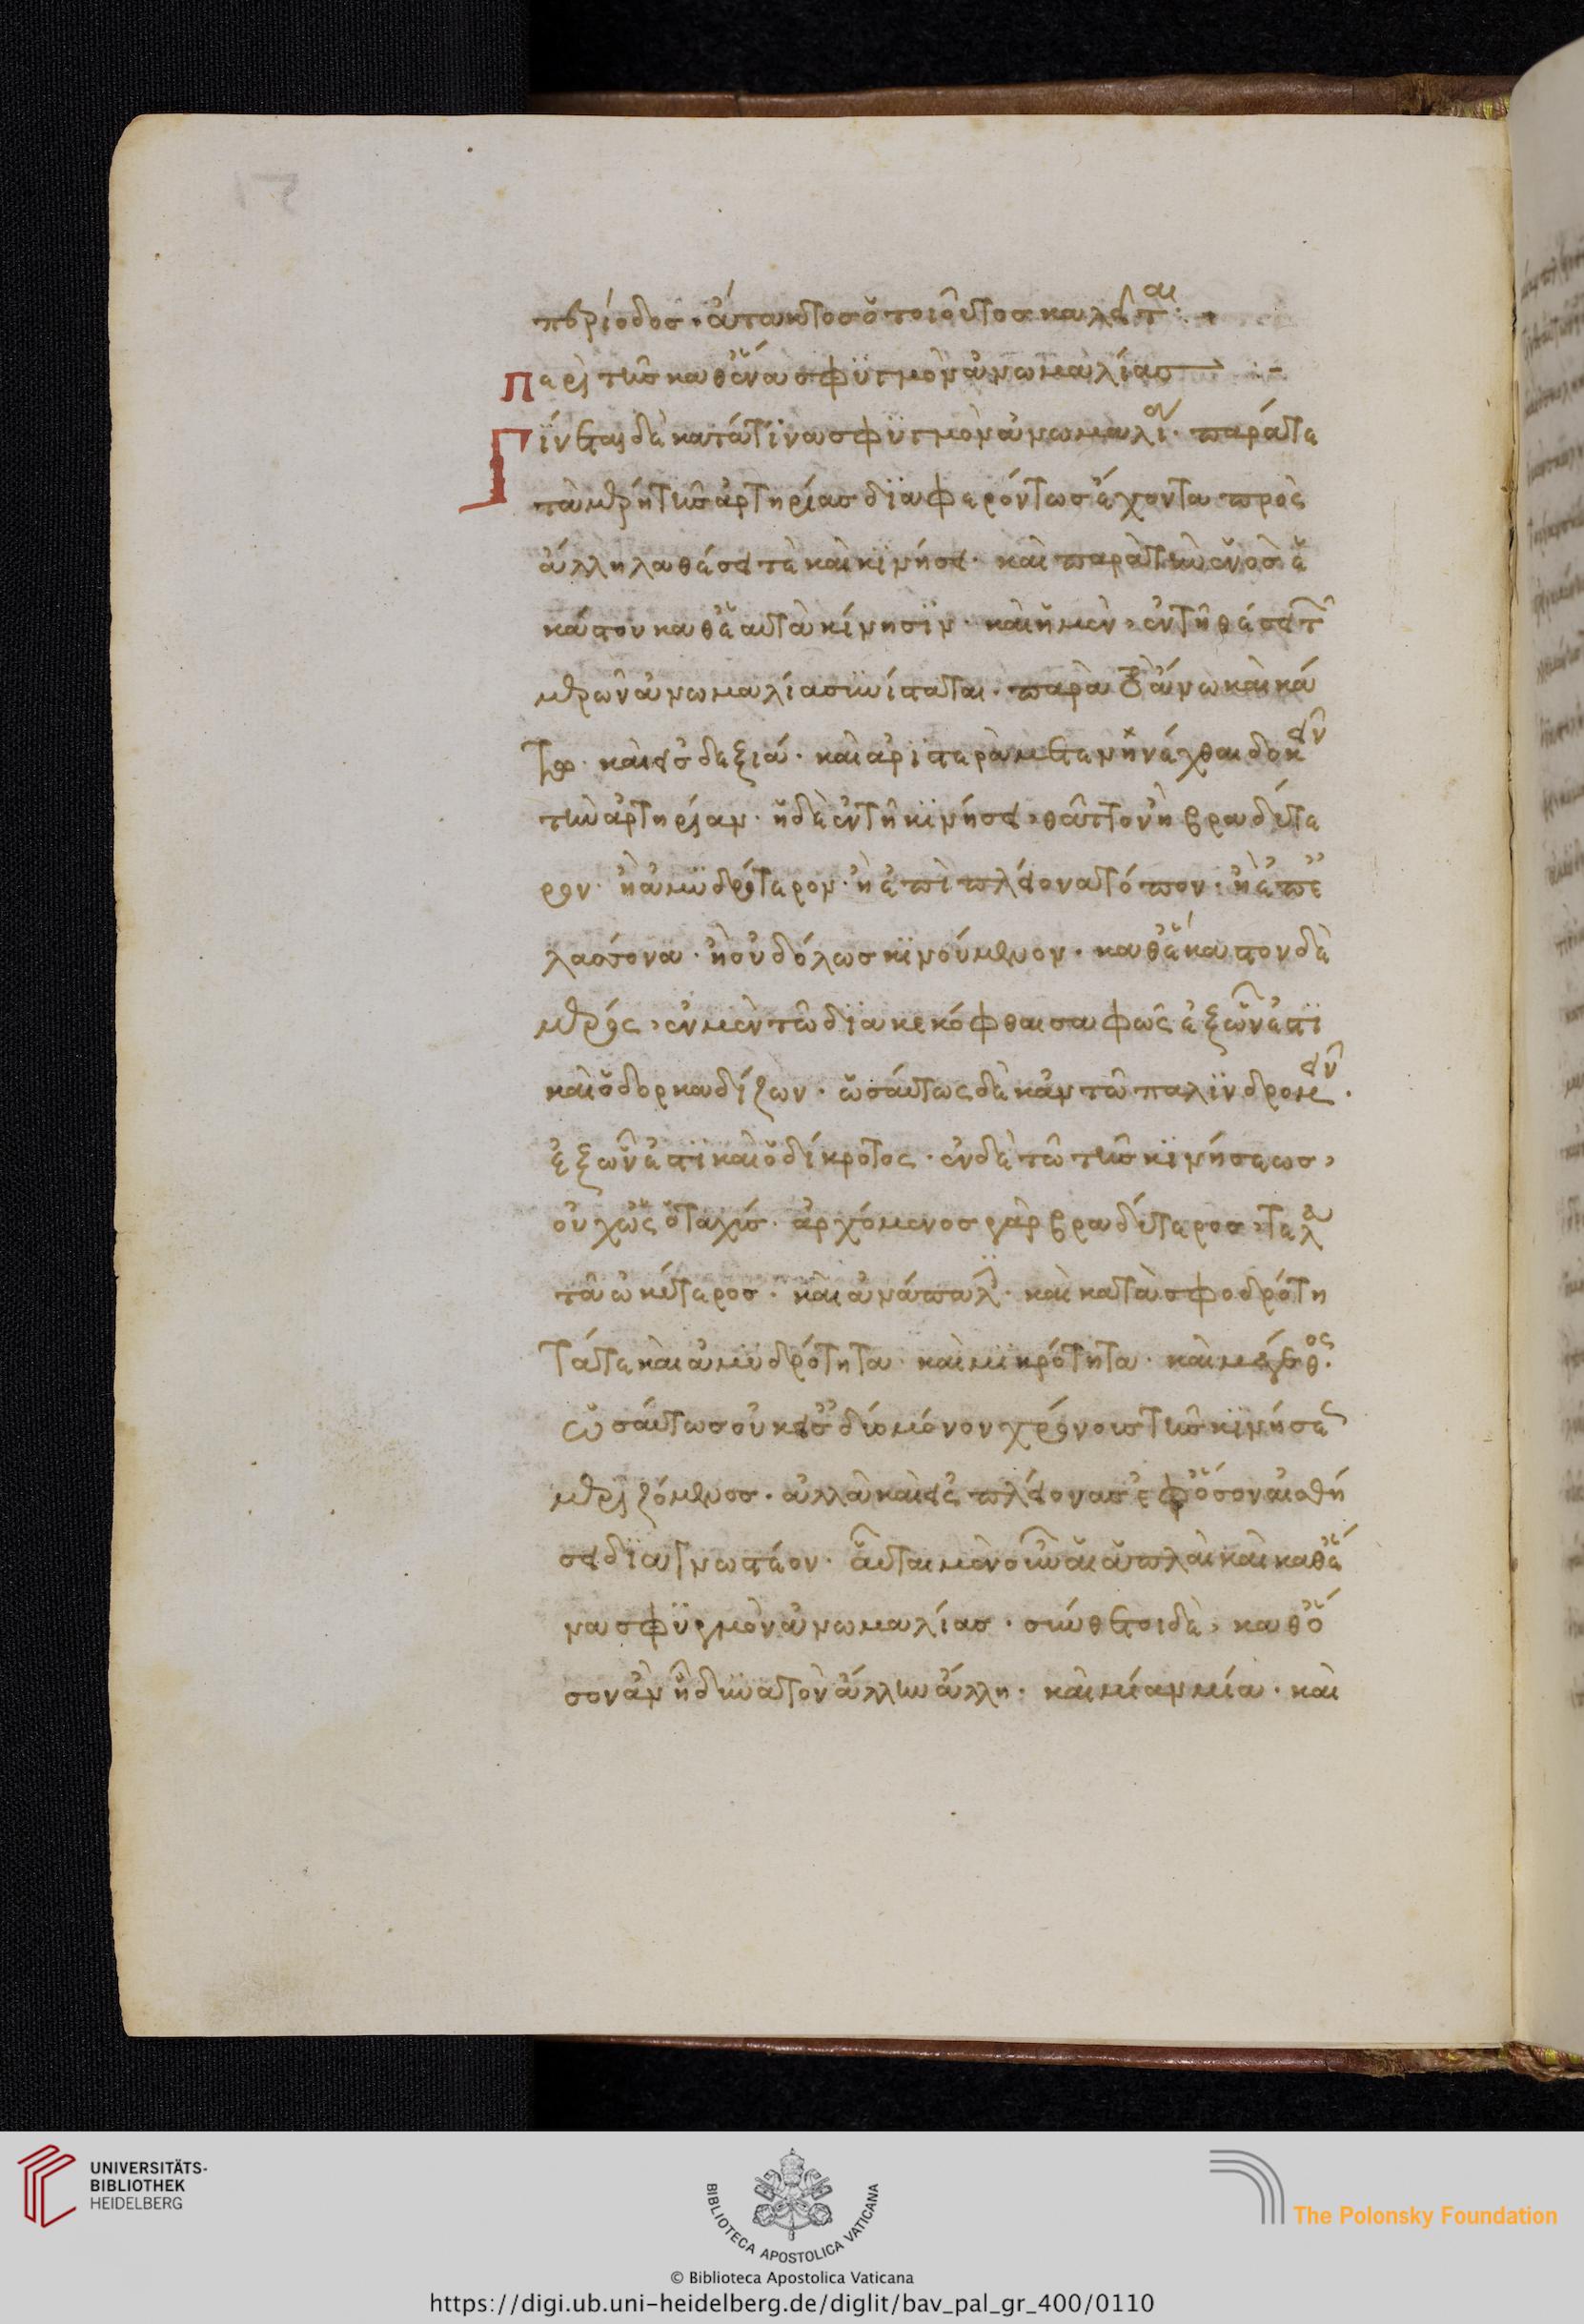 περίοδος· ἄτακτος ὁ τοιοῦτος καλεῖται:
Περὶ τῆς καθ' ἕνα σφυγμὸν ἀνωμαλίας :-
Γίνεται δὲ κατά τινα σφυγμὸν ἀνωμαλία· παρά τε
τὰ μέρη τῆς ἀρτηρίας διαφερόντως ἔχοντα πρὸς
ἄλληλα θέσει τὲ καὶ κινήσει· καὶ παρὰ τὴν ἑνὸς ἑ
κάστου καθ' ἑαυτὰ κίνησιν· καὶ ἡ μὲν, ἐν τῇ θέσει τῶν
μερῶν ἀνωμαλία συνίσταται· παρὰ τὸ ἄνω καὶ κά
τω· καὶ εἰς δεξιά· καὶ ἀριστερὰ μετενηνέχθαι δοκεῖν
τὴν ἀρτηρίαν· ἡ δὲ ἐν τῇ κινήσει, θᾶττον ἢ βραδύτε
ρον· ἢ ἀμυδρότερον· ἢ ἐπὶ πλείονα τόπον· ἢ ἐπ' ἐ
λάσσονα· ἢ οὐδόλως κινούμενον· καθ' ἕκαστον δὲ
μέρος, ἐν μὲν τῷ διακεκόφθαι σαφῶς ἐξ ὧν ἐστὶ
καὶ ὁ δορκαδίζων· ὡσαύτως δὲ κἀν τῷ παλινδρομεῖν·
ἐξ ὧν ἐστὶ καὶ ὁ δίκροτος· ἐν δὲ τῷ τῆς κινήσεως,
οὐχ ὡς ὁ ταχύς· ἀρχόμενος γὰρ βραδύτερος, τελευ
τᾷ ὠκύτερος· καὶ ἀνάπαλιν· καὶ κατὰ σφοδρότη
τά τε καὶ ἀμυδρότητα· καὶ μικρότητα· καὶ μέγεθος·
ὡσαύτως οὐκ εἰς δύο μόνον χρόνους τῆς κινήσεως
μεριζομένης· ἀλλὰ καὶ εἰς πλείονας ἐφ' ὅσον αἰσθή
σει διαγνωστέον· αὗται μὲν οὖν αἱ ἁπλαῖ καὶ καθ' ἕ
να σφυγμὸν ἀνωμαλίας· σύνθετοι δὲ, καθ' ὅ
σον ἂν ἦ δυνατὸν ἄλλην ἄλλη· καὶ μίαν μία· καὶ
UNIVERSITÄTS-
BIBLIOTHEK
HEIDELBERG
BIBLIOTECA APOSTOLICA VATICANA
The Polonsky Foundation
© Biblioteca Apostolica Vaticana
https://digi.ub.uni-heidelberg.de/diglit/bav_pal_gr_400/0110